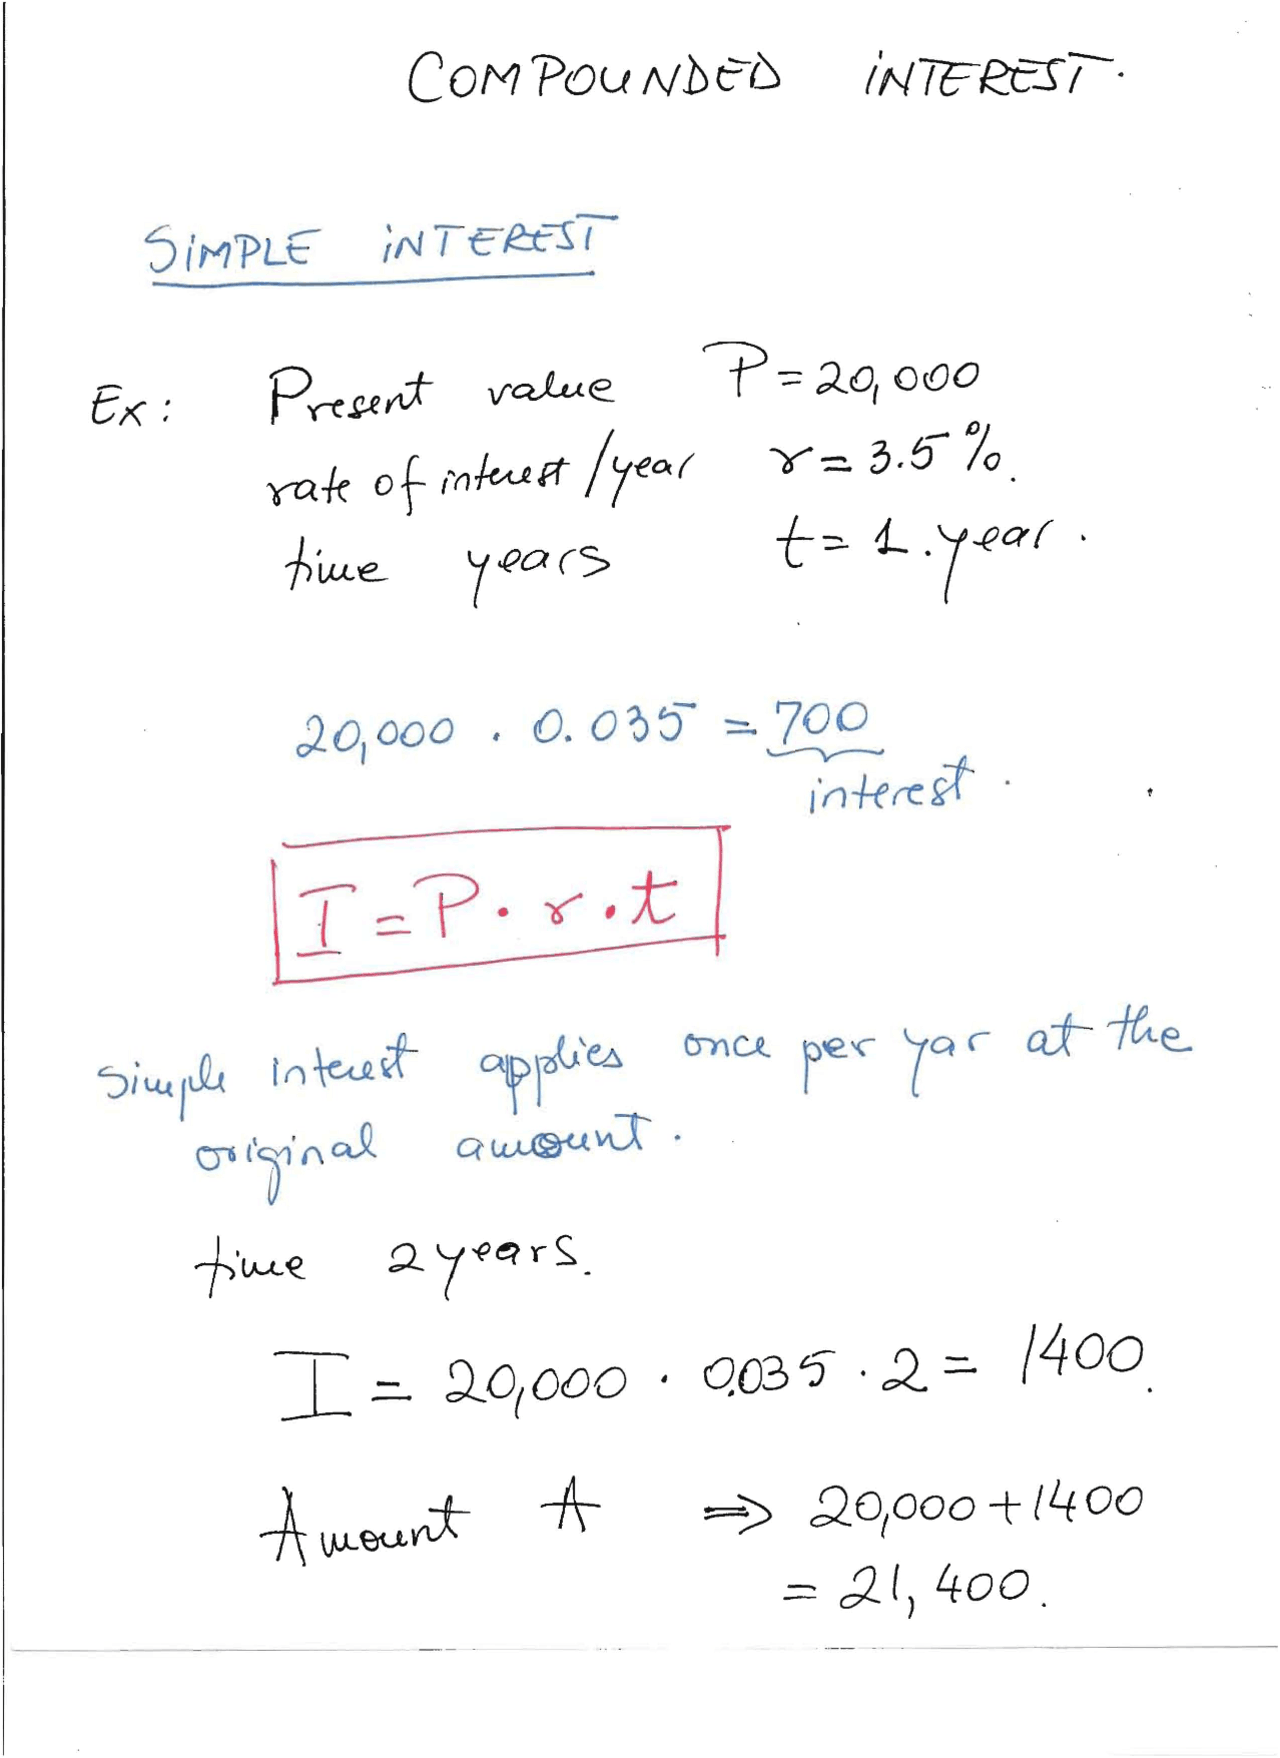 COMPOUNDED INTEREST.
SIMPLE INTEREST
Ex: Present value P = 20,000
rate of interest / year r = 3.5 %.
time years t = 1. year.
20,000 . 0.035 = 700
interest.
I = P . r . t
Simple interest applies once per yar at the
original amount.
time 2 years.
I = 20,000 . 0.035 . 2 = 1400.
Amount A ⇒ 20,000 + 1400
= 21,400.